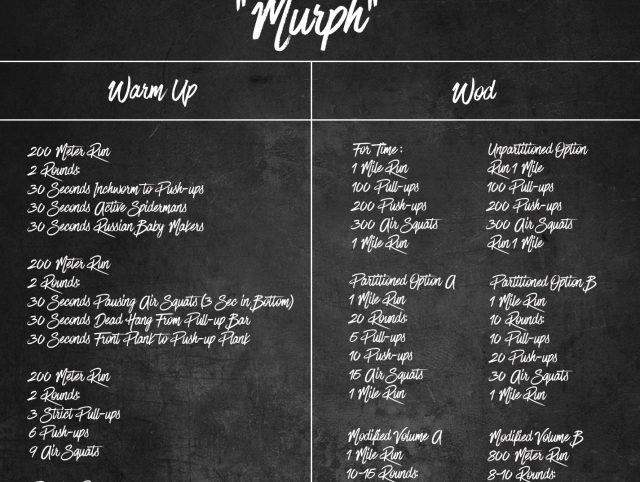 "Murph"
Warm Up
200 Meter Run
2 Rounds:
30 Seconds Inchworm to Push-ups
30 Seconds Active Spidermans
30 Seconds Russian Baby Makers
200 Meter Run
2 Rounds:
30 Seconds Pausing Air Squats (3 Sec in Bottom)
30 Seconds Dead Hang From Pull-up Bar
30 Seconds Front Plank to Push-up Plank
200 Meter Run
2 Rounds:
3 Strict Pull-ups
6 Push-ups
9 Air Squats
Wod
For Time:
1 Mile Run
100 Pull-ups
200 Push-ups
300 Air Squats
1 Mile Run
Unpartitioned Option
Run 1 Mile
100 Pull-ups
200 Push-ups
300 Air Squats
Run 1 Mile
Partitioned Option A
1 Mile Run
20 Rounds:
5 Pull-ups
10 Push-ups
15 Air Squats
1 Mile Run
Partitioned Option B
1 Mile Run
10 Rounds:
10 Pull-ups
20 Push-ups
30 Air Squats
1 Mile Run
Modified Volume A
1 Mile Run
10-15 Rounds:
Modified Volume B
800 Meter Run
8-10 Rounds: